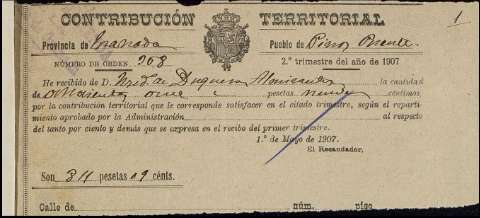 1
CONTRIBUCIÓN TERRITORIAL
Provincia de Granada Pueblo de Pinos Puente
NÚMERO DE ORDEN 208 2.º trimestre del año de 1907
He recibido de D. la cantidad
de once pesetas céntimos
por la contribución territorial que le corresponde satisfacer en el citado trimestre, según el reparti
miento aprobado por la Administración al respecto
del tanto por ciento y demás que se expresa en el recibo del primer trimestre.
1.º de Mayo de 1907.
El Recaudador,
Son 311 pesetas 09 cénts.
Calle de núm. piso